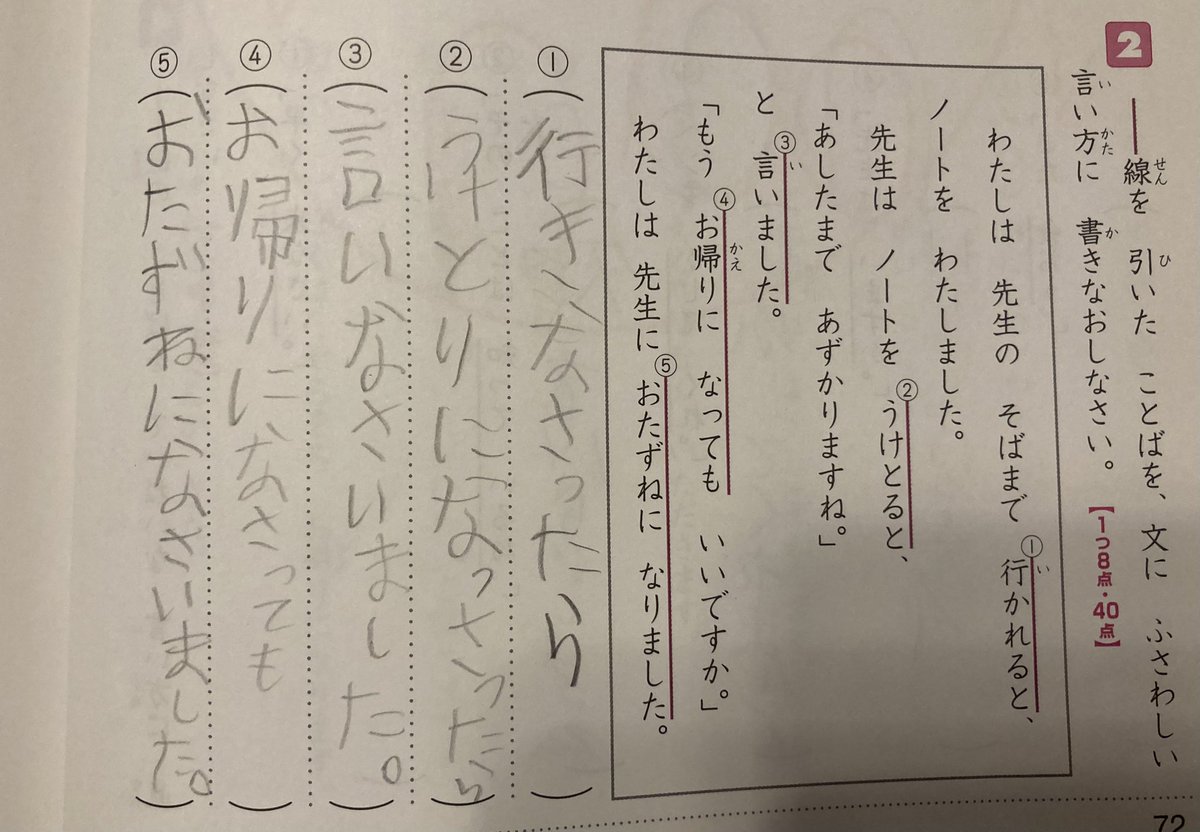 2
――線を 引いた ことばを、文に ふさわしい
言い方に 書きなおしなさい。
【1つ8点・40点】
わたしは 先生の そばまで ①行かれると、
ノートを わたしました。
先生は ノートを ②うけとると、
「あしたまで あずかりますね。」
と ③言いました。
「もう ④お帰りに なっても いいですか。」
わたしは 先生に ⑤おたずねに なりました。
①（行きなさったら）
②（うけとりになっさったら）
③（言いなさいました。）
④（お帰りになさっても）
⑤（おたずねになさいました。）
72